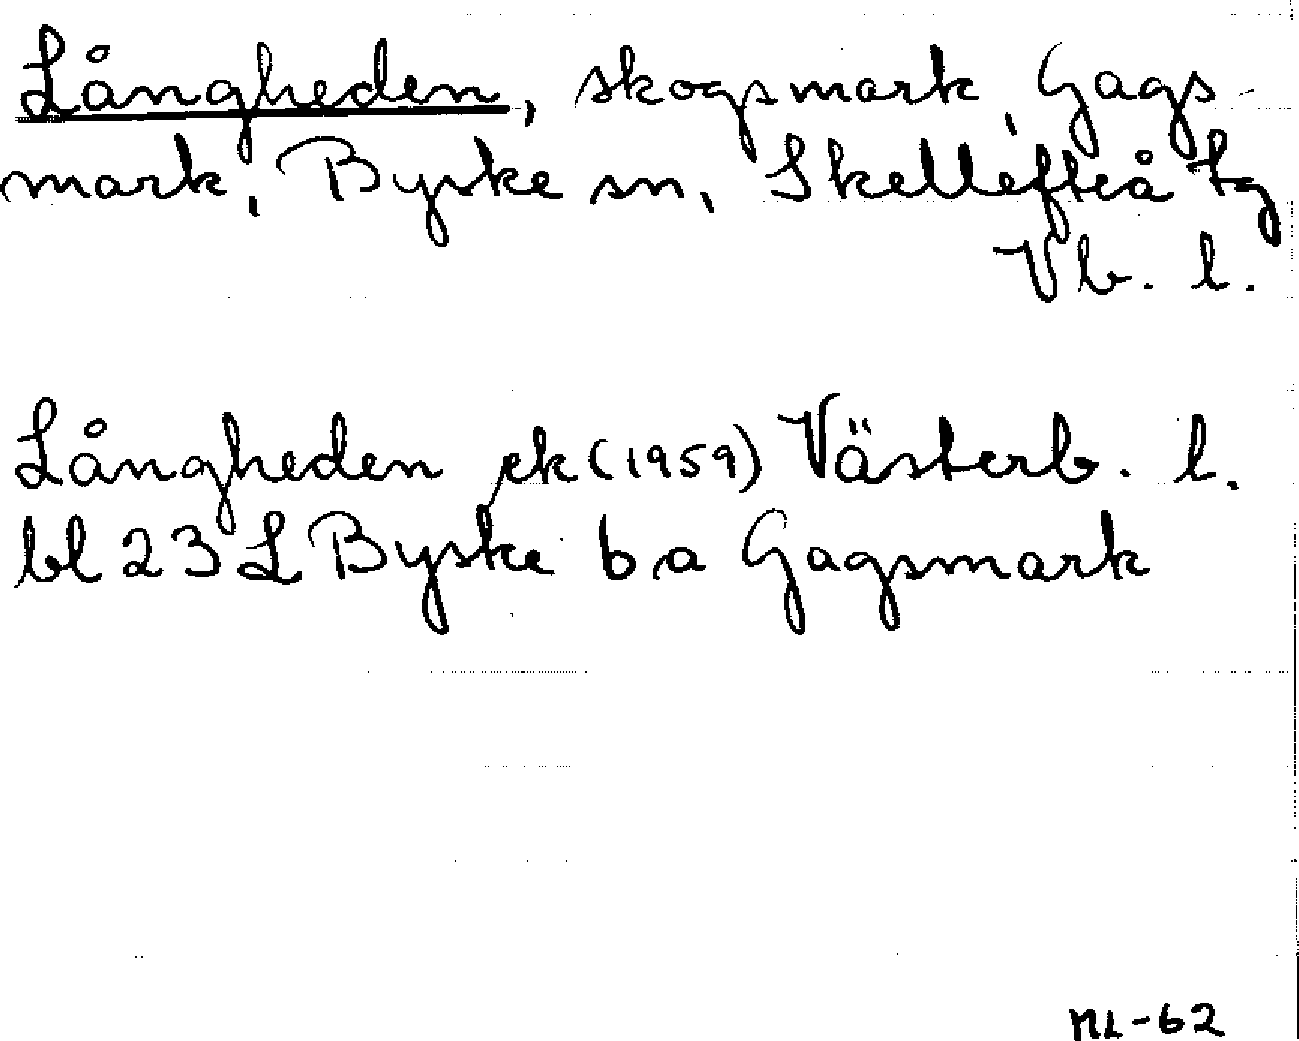 Långheden, skogsmark, Gags-
mark, Byske sn, Skellefteå tg
Vb. l.
Långheden ek (1959) Västerb. l.
bl 23 L Byske 6 a Gagsmark
NL-62